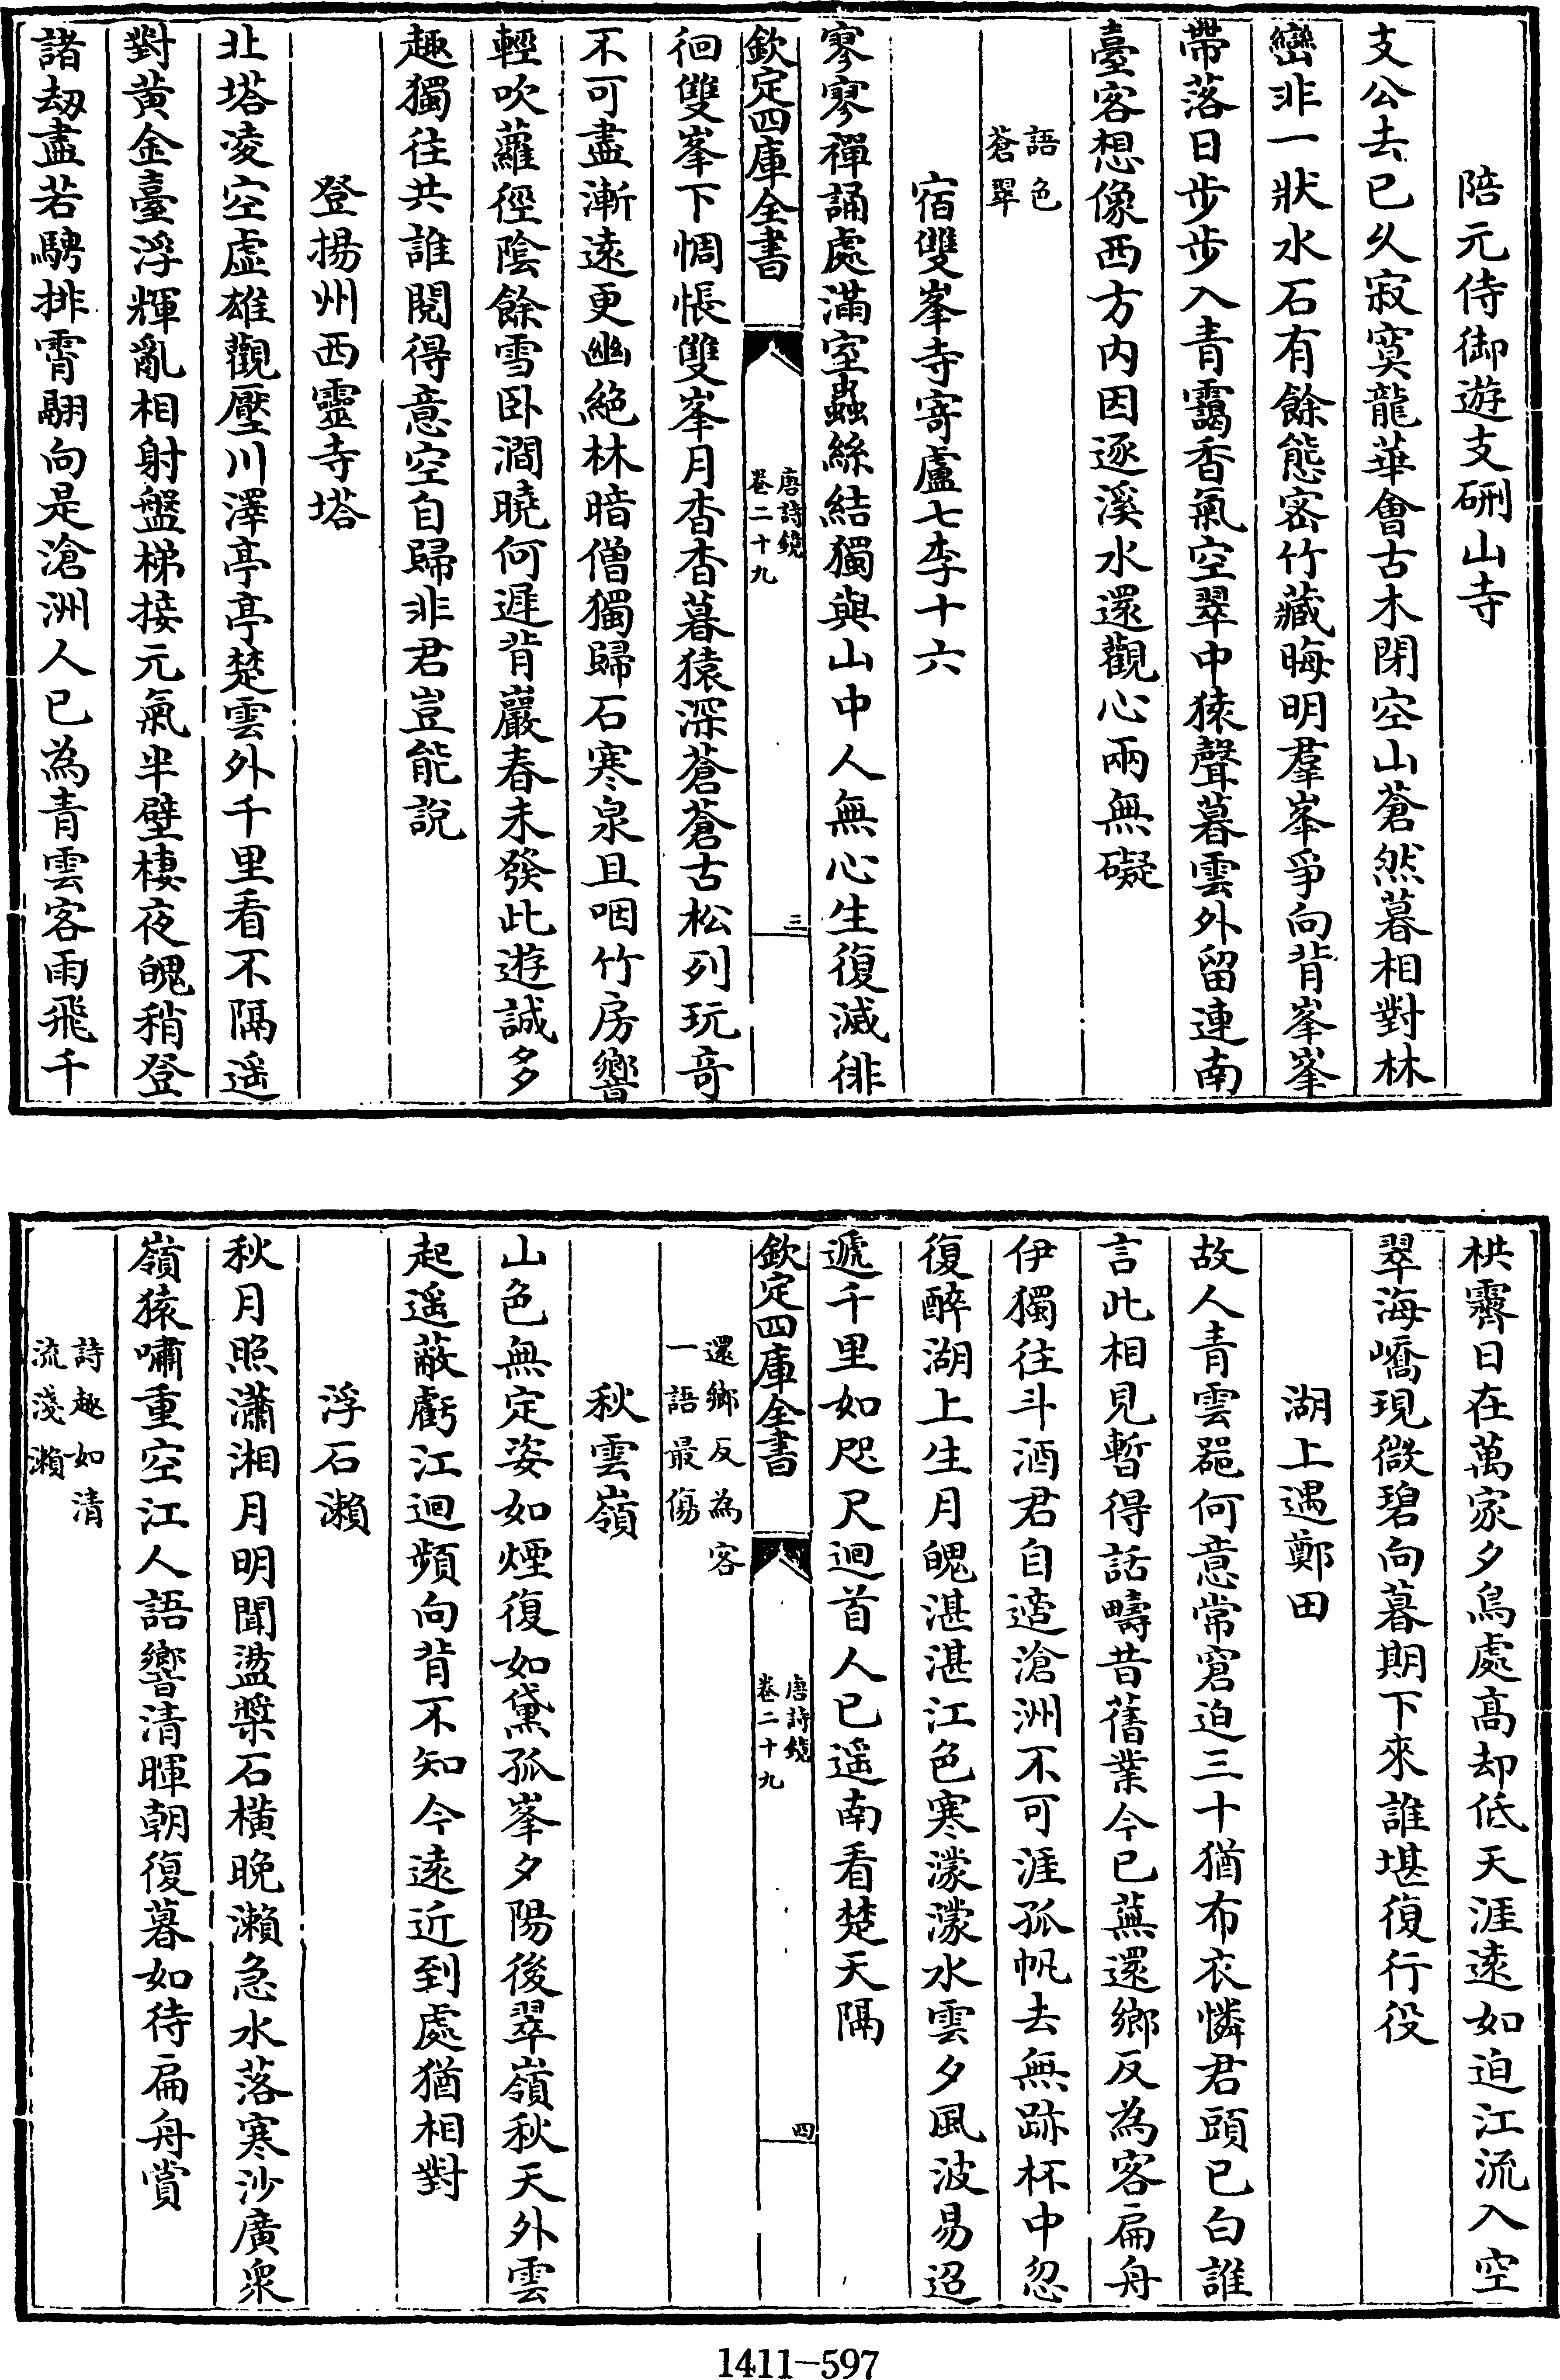 陪元侍御遊支硎山寺
支公去已久寂寞龍華會古木閉空山蒼然暮相對林
巒非一狀水石有餘態密竹藏晦明羣峯爭向背峯峯
帶落日步步入青靄香氣空翠中猿聲暮雲外留連南
臺客想像西方內因逐溪水還觀心兩無礙
語色
蒼翠
宿雙峯寺寄盧七李十六
寥寥禪誦處滿室蟲絲結獨與山中人無心生復滅徘
欽定四庫全書
唐詩鏡
卷二十九
三
徊雙峯下惆悵雙峯月杳杳暮猿深蒼蒼古松列玩奇
不可盡漸遠更幽絶林暗僧獨歸石寒泉且咽竹房響
輕吹蘿徑陰餘雪卧澗曉何遲背巖春未發此遊誠多
趣獨往共誰閱得意空自歸非君豈能說
登揚州西靈寺塔
北塔凌空虛雄觀壓川澤亭亭楚雲外千里看不隔遥
對黃金臺浮輝亂相射盤梯接元氣半壁棲夜魄稍登
諸刼盡若騁排霄翮向是滄洲人已為青雲客雨飛千
栱霽日在萬家夕鳥處高却低天涯遠如迫江流入空
翠海嶠現微碧向暮期下來誰堪復行役
湖上遇鄭田
故人青雲器何意常窘迫三十猶布衣憐君頭已白誰
言此相見暫得話疇昔舊業今已蕪還鄉反為客扁舟
伊獨往斗酒君自適滄洲不可涯孤帆去無跡杯中忽
復醉湖上生月魄湛湛江色寒濛濛水雲夕風波易迢
遞千里如咫尺迴首人已遥南看楚天隔
欽定四庫全書
唐詩鏡
卷二十九
四
還鄉反為客
一語最傷
秋雲嶺
山色無定姿如煙復如黛孤峯夕陽後翠嶺秋天外雲
起遥蔽虧江迴頻向背不知今遠近到處猶相對
浮石瀨
秋月照瀟湘月明聞盪槳石橫晚瀨急水落寒沙廣衆
嶺猿嘯重空江人語響清暉朝復暮如待扁舟賞
詩趣如清
流淺瀨
1411-597